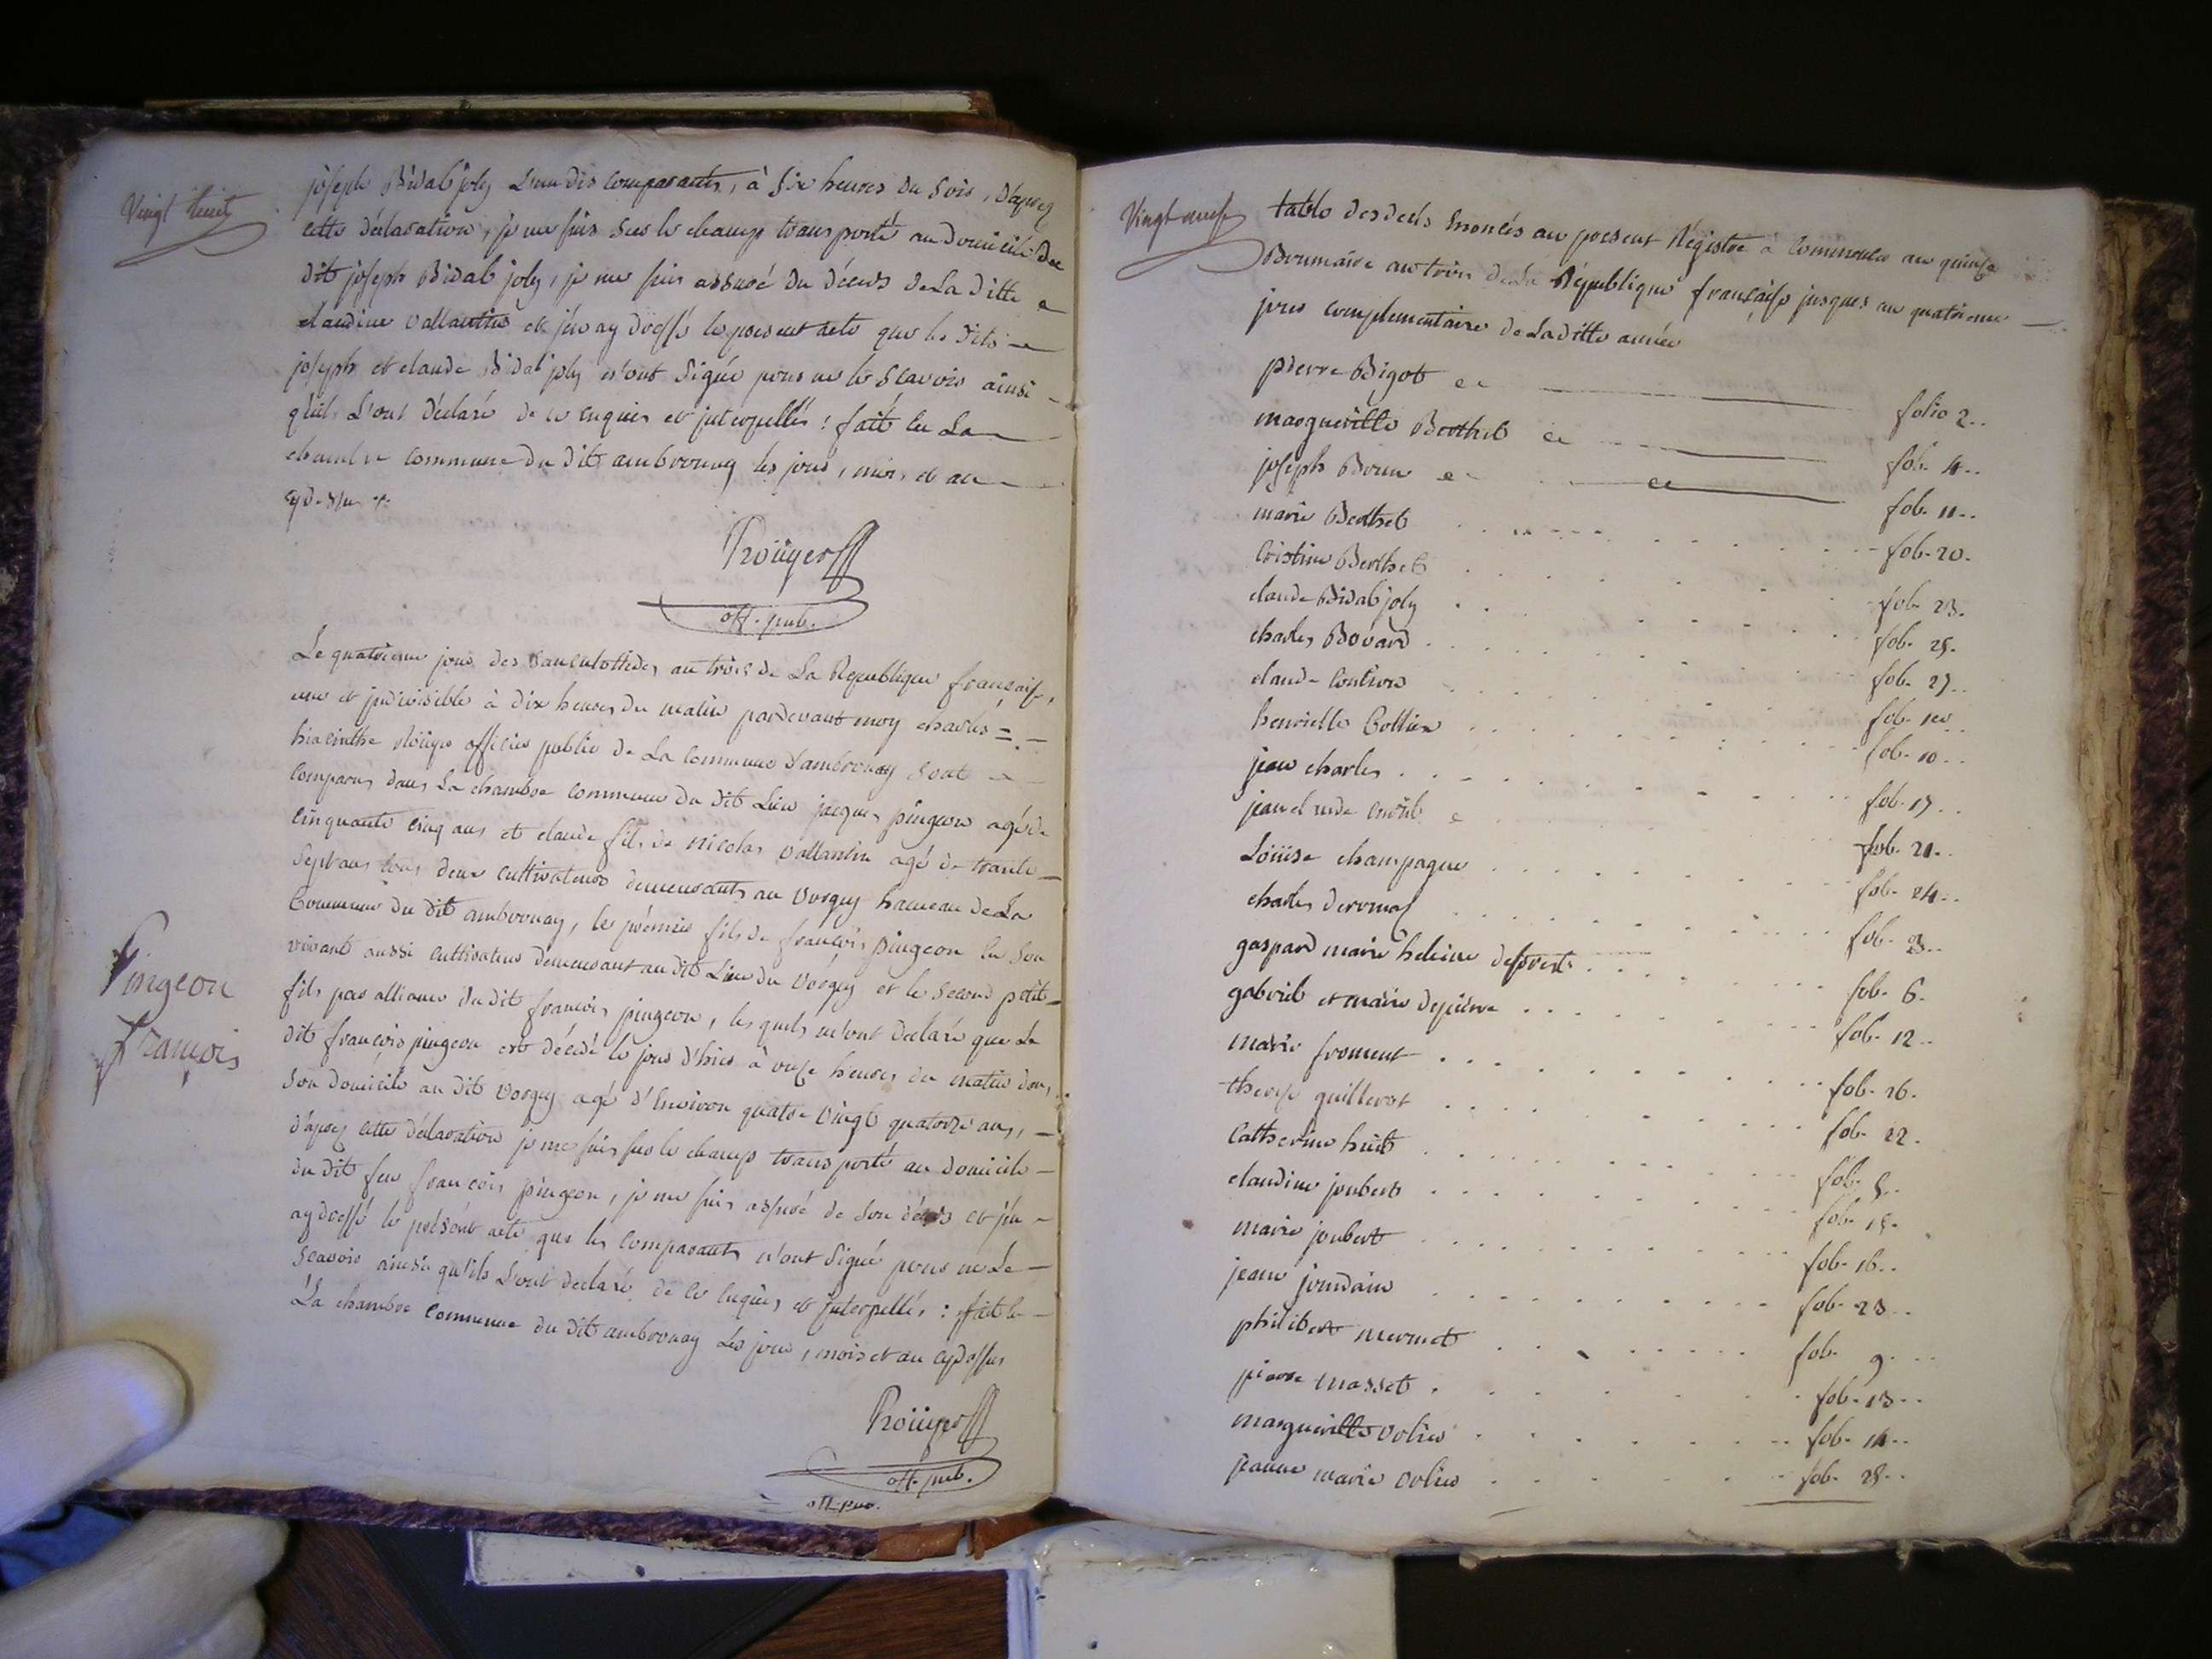 Vingt huit
joseph Bidal joly L'un des comparants, à Six heures du Soir, d'aprez
cette déclaration, je me suis Sur le champ transporté au domicile du
dit joseph Bidal joly, je me suis assuré du décès de La ditte
claudine vallantin et j'en ay dressé le present acte que les dits
joseph et claude Bidal joly n'ont Signé pour ne le Scavoir ainsi
qu'ils L'ont déclaré de ce enquis et interpellés : fait en La
chambre commune du dit ambronay les jour, mois, et an
cy dessus
Roüyer
off. pub.
Le quatrieme jour des sanculottides an trois de La Republique française,
une et indivisible à dix heures du matin pardevant moy charles
hiacinthe Roüyer officier public de La commune d'ambronay Sont
comparus dans La chambre commune du dit Lieu jacques pingeon agé de
cinquante cinq ans et claude fils de nicolas vallantin agé de trante
Sept ans tous deux cultivateurs demeurants au vorgey hameau de La
Commune du dit ambronay, le premier fils de françois pingeon en Son
vivant aussi cultivateur demeurant au dit Lieu du vorgey et le Second petit
fils par alliance du dit francois pingeon, les quels m'ont declaré que Le
dit francois pingeon est décédé le jour d'hier à onze heures du matin dans
Son domicile au dit vorgey agé d'Environ quatre vingt quatorze ans,
d'aprez cette déclaration je me suis sur le champ transporté au domicile
du dit feu francois pingeon, je me suis assuré de Son décès et j'en
ay dressé le présent acte que les comparants n'ont Signé pour ne Le
Scavoir ainsi qu'ils L'ont declaré de ce enquis et interpellés : fait en
La chambre commune du dit ambronay Les jour, mois et an cy dessus
Pingeon
François
Roüyer
off. pub.
off. pub.
Vingt neuf
table des decés Enoncés au present Régistre à Commencer au quinze
Brumaire an trois de La République française jusques au quatrieme
jour complementaire de Laditte année
pierre Bigot folio 2..
margueritte Berthet fol. 4..
joseph Brun fol. 11..
marie Berthet fol. 20.
Cristine Berthet fol. 23.
claude Bidal joly fol. 25.
charles Bovard fol. 27..
claude
henriette Collier fol. 10..
jean charles fol. 17..
jean claude fol. 21..
Loüise champagne fol. 24..
charles fol. 3..
gaspard marie heleine fol. 6.
gabriel et marie fol. 12..
marie froment fol. 26.
therese guillerot fol. 22.
Catherine fol. 5..
claudine joubert fol. 15.
marie joubert fol. 16..
jean jourdain fol. 23..
philibert mermet fol. 9..
pierre masset fol. 13..
margueritte volier fol. 14..
jeanne marie volier fol. 28..